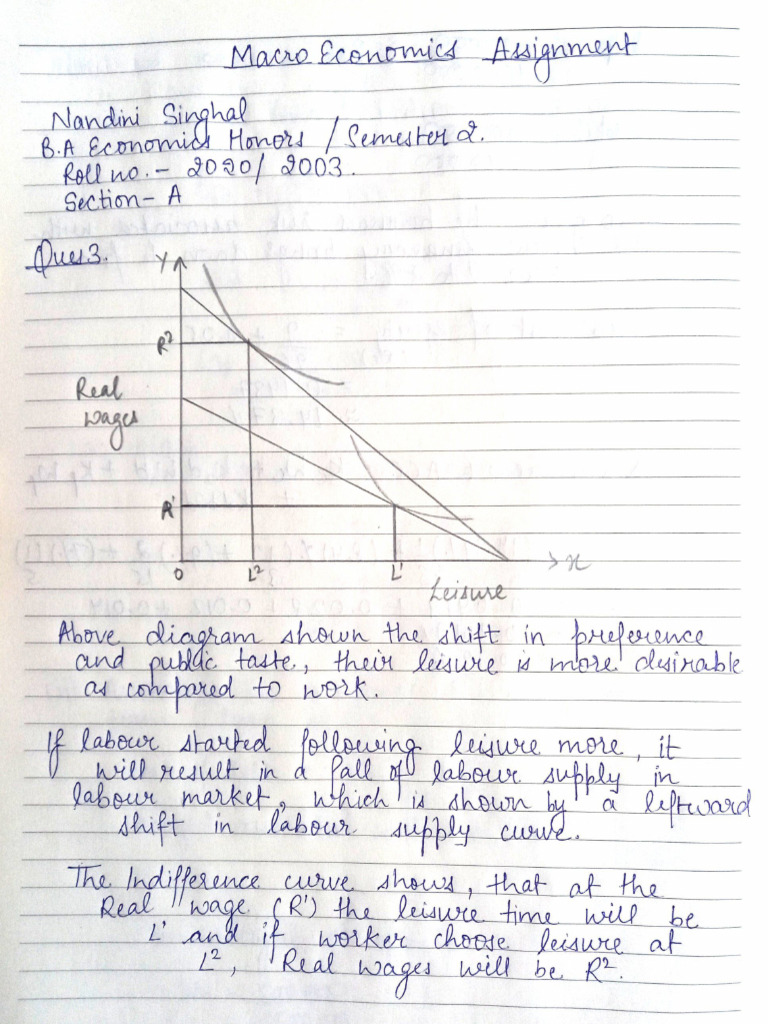 Macro Economics Assignment
Nandini Singhal
B.A Economics Honors / Semester 2.
Roll no. - 2020/2003.
Section - A
Ques 3.
Y
R²
Real
wages
R'
0
L²
L'
x
Leisure
Above diagram shown the shift in preference
and public taste, their leisure is more desirable
as compared to work.
If labour started following leisure more, it
will result in a fall of labour supply in
labour market, which is shown by a leftward
shift in labour supply curve.
The Indifference curve shows, that at the
Real wage (R') the leisure time will be
L' and if worker choose leisure at
L², Real wages will be R².